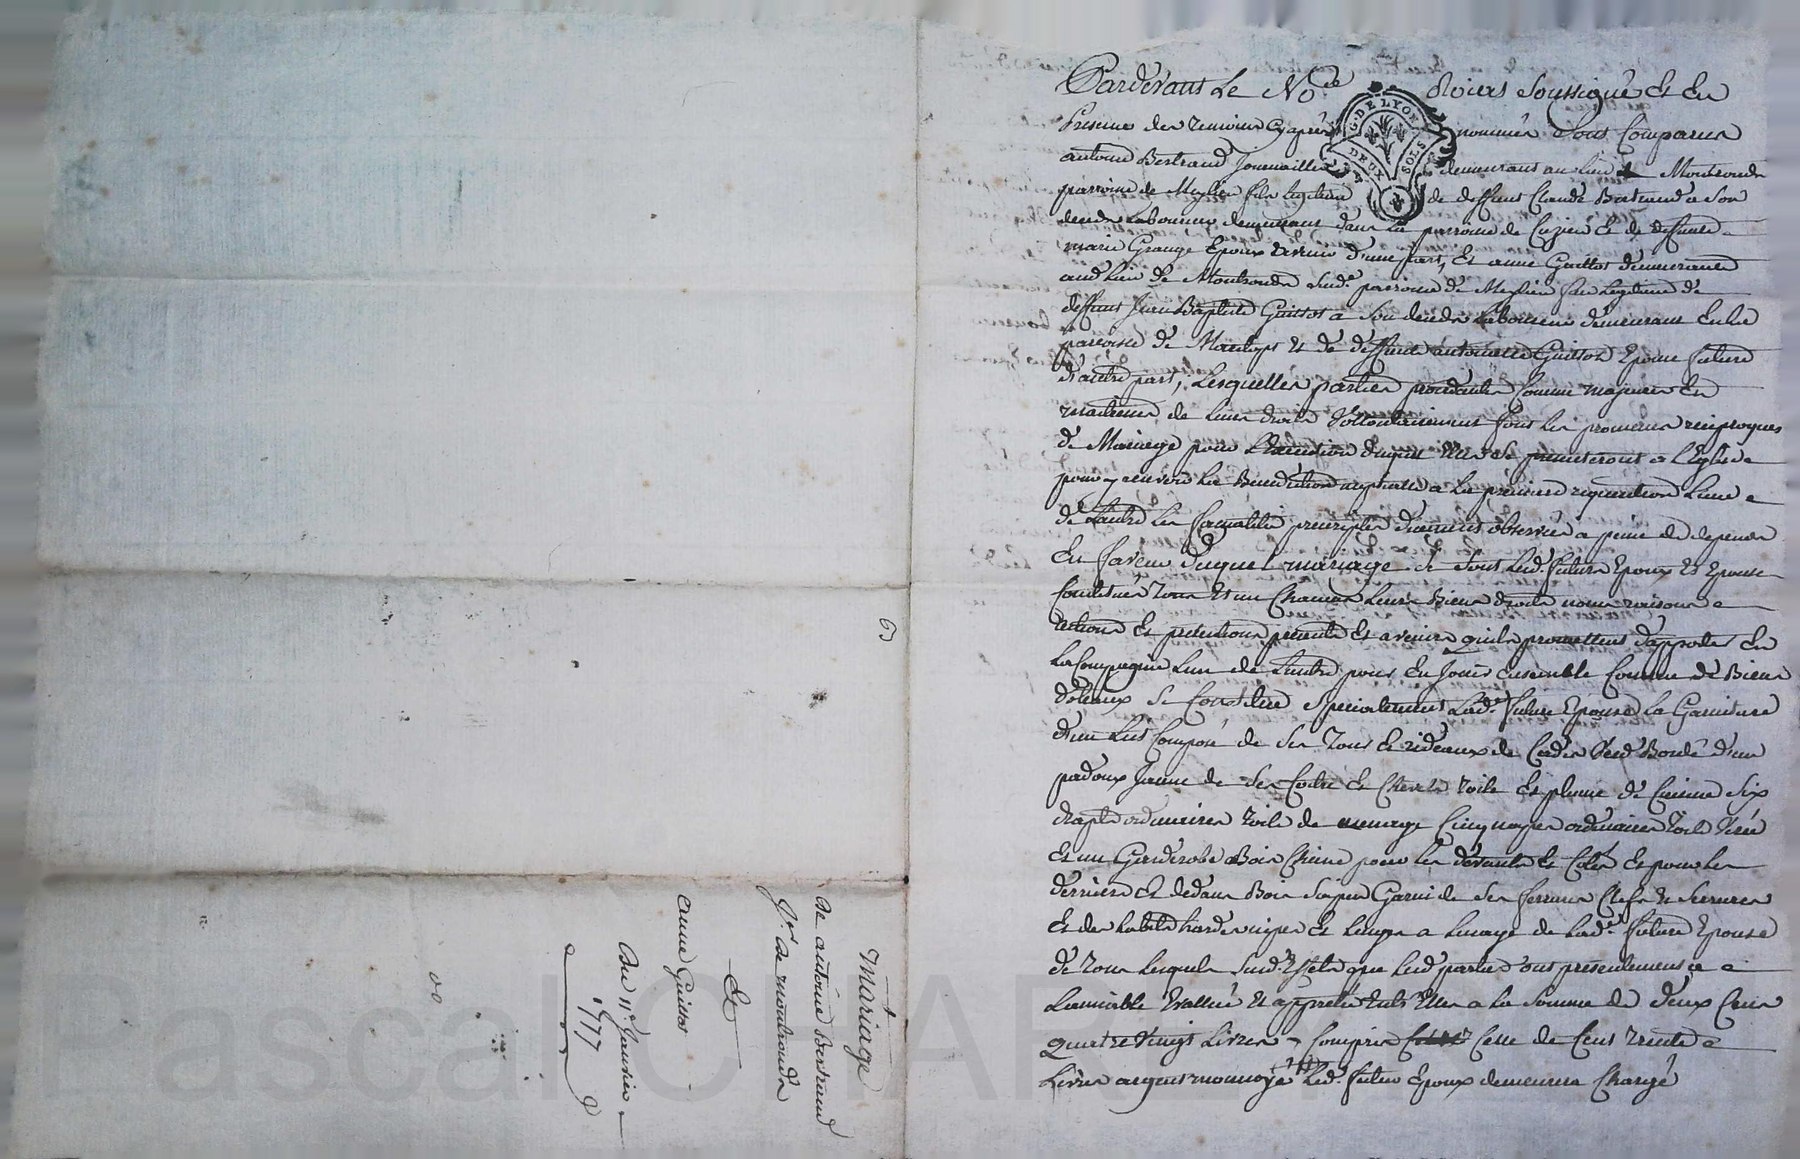 Pardevant Le No.re Roial Soussigné Et En
Presence des temoins cy après nommés Sont Comparus
antoine Bertrand Journaillier demeurant au lieu de Montrond
parroisse de Meylieu fils legitime de deffunt Claude Bertrand a Son
deceds Laboureur demeurant dans La parroisse de Cuzieu Et de deffunte
marie Grange Epoux avenir d'une part, Et anne Guillot demeurante
aud. Lieu de Montrond Susd.e parroisse de Meylieu fille Legitime de
deffunt Jean Baptiste Guillot a Son deceds Laboureur demeurant En La
parroisse de Et de deffunte antoinette Guillot Epouse future
d'autre part, Lesquelles parties procedantes Comme majeures Et
maitresses de Leurs droits Vollontairement font Les promesses reciproques
de Mariage pour L'Execution duquel Elles Se presenteront a L'Eglise
pour y recevoir La Benediction nuptialle a La premiere requisition L'une
de L'autre Les formalités prescriptes duement observées a peine de depens
En faveur duquel mariage Se Sont Lesd. futurs Epoux Et Epouse
Constitués Tous Et un Chacuns Leurs Biens droits noms raisons
actions Et pretentions presents Et avenirs qu'ils promettent d'apporter En
La Compagnie L'un de L'autre pour En Jouir Ensemble Comme de Biens
dotaux Se Constitue Specialement Lad.e future Epouse La Garniture
d'un Lict Composé de Ses Tours Et rideaux de Cadis Verd Bordé d'un
padoux Jaune de Ses Coitre Et Chevet Toile Et plume de Cuisine Six
draps ordinaires toile de menage Cinq nappes ordinaires Toile
Et un Garderobe Bois Chêne pour Les devants Et Cotés Et pour Les
derriere Et dedans Bois Sapin Garni de Ses ferrures Clefs Et Serrures
Et des habits hardes nipes Et Linges a L'usage de Lad.e future Epouse
de Tous Lesquels Susd. Effets que Lesd. parties ont presentement a
L'amiable Evallué Et apprecié Entr'Elles a La Somme de deux Cents
quatre Vingt Livres y Compris Celle de Cent trente
Livres argent monoyé Led. futur Epoux demeurera Chargé
Mariage
de antoine Bertrand
J.er de montrond
Et
anne Guillot
Du 11.e Janvier
1777